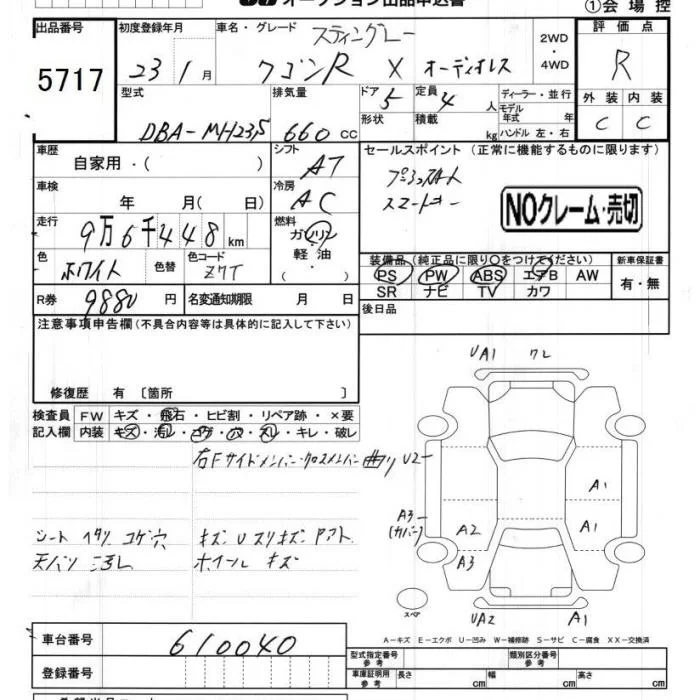 オークション出品申込書 ①会場控
出品番号 初度登録年月 車名・グレード スティングレー 2WD・4WD 評価点
5717 23年 1月 ワゴンR X オーディオレス R
型式 排気量 ドア 5 定員 4人 ディーラー・並行 外装 内装
DBA-MH23S 660cc 形状 積載 kg モデル年式 年 ハンドル 左・右 C C
車歴 自家用・( ) シフト AT セールスポイント (正常に機能するものに限ります)
車検 年 月( 日) 冷房 AC プッシュスタート
スマートキー
NOクレーム・売切
走行 9万6千448km 燃料 ガソリン・軽油・( ・ )
色 ホワイト 色替 色コード Z7T
装備品(純正品に限り○をつけてください) 新車保証書
PS PW ABS エアB AW 有・無
SR ナビ TV カワ
R券 9880円 名変通知期限 月 日 後日品
注意事項申告欄(不具合内容等は具体的に記入して下さい)
修復歴 有 〔箇所 〕
検査員 FW キズ・飛石・ヒビ割・リペア跡・×要
記入欄 内装 キズ・汚レ・コゲ・穴・スレ・キレ・破レ
右Fサイドメンバー・クロスメンバー曲り
シート ヘタリ コゲ穴 キズ U スリキズ Pアト
天バリ 汚レ ホイール キズ
UA1 ワレ
U2
A1
A3
(カバー)
A2 A1
A3
スペア
UA2 A1
A-キズ E-エクボ U-凹み W-補修跡 S-サビ C-腐食 XX-交換済
車台番号 610040
型式指定番号 参考 類別区分番号 参考
登録番号 車庫証明用 参考 長さ cm 幅 cm 高さ cm